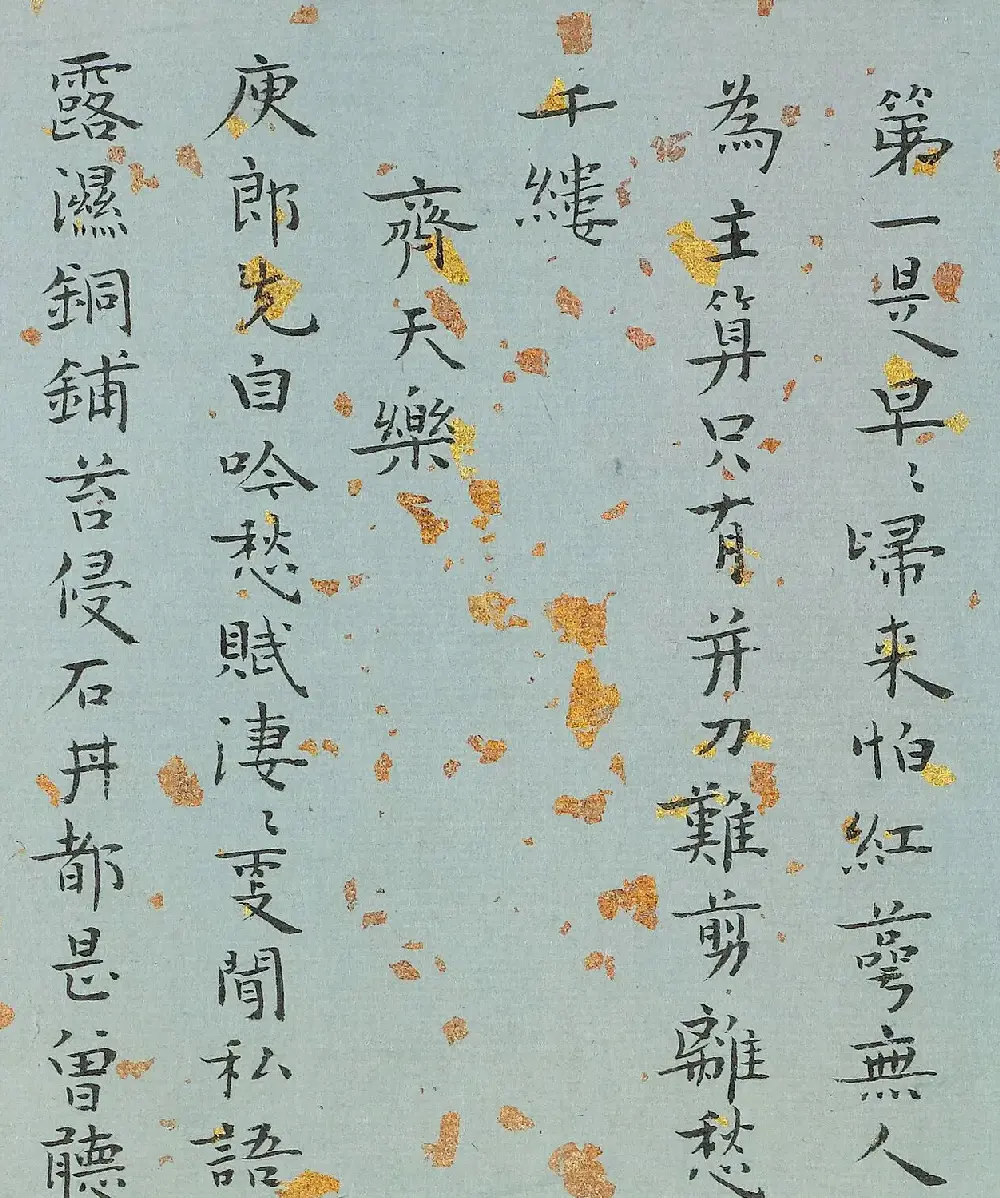 第一是早〻歸來怕紅萼無人
為主算只有并刀難剪離愁
千縷
齊天樂
庾郎先自吟愁賦淒〻更聞私語
露濕銅鋪苔侵石井都是曾聽